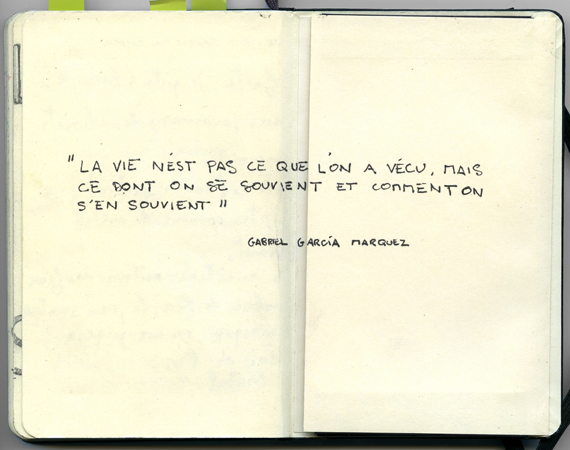 "LA VIE N'EST PAS CE QUE L'ON A VÉCU, MAIS
CE DONT ON SE SOUVIENT ET COMMENT ON
S'EN SOUVIENT"
GABRIEL GARCÍA MARQUEZ